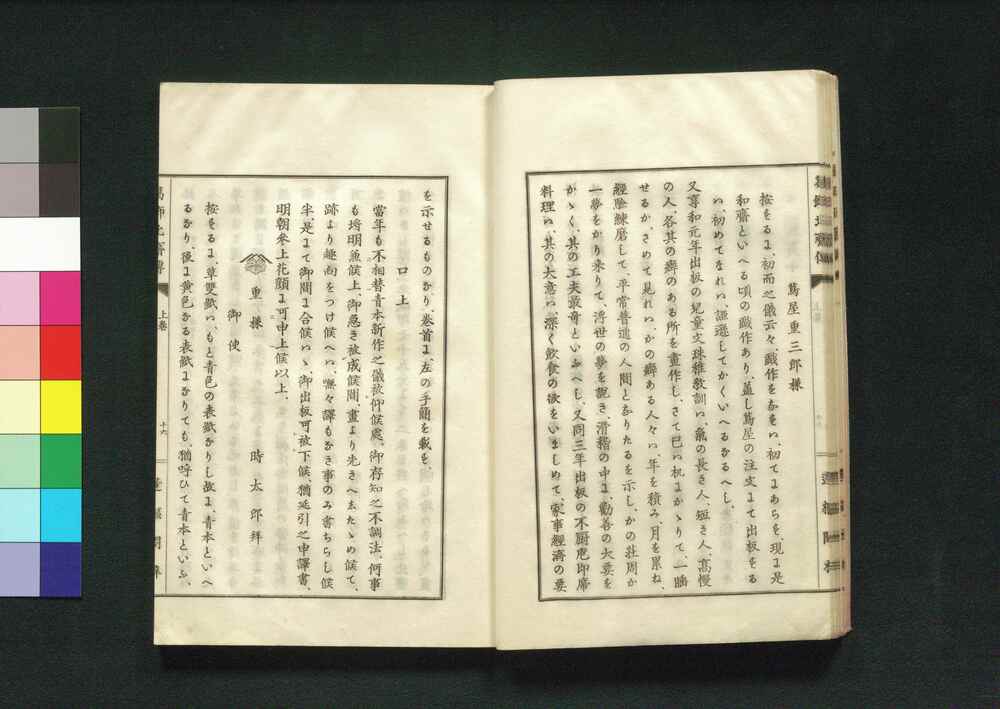 蔦屋重三郎様
按をるよ、初而之儀云々、戯作をなをい、初てよあらを、現よ是
和齋といへる頃の戯作あり、蓋し蔦屋の注文よて出板をる
い、初めてなれい、謳遜してかくいへるなるへし、
又享和元年出板の兒童文珠稚教訓い、氣の長き人、短き人、高慢
の人、各其の癖のある所を畫作し、さて已い机よかゝりて、一睡
せるか、さめて見れい、かの癖ある人々い、年を積み、月を累ね、
經驗練磨して、平常普通の人間となりたるを示し、かの莊周か
一夢をかり來りて、濟世の夢を説き、滑稽の中よ、勸善の大要を
かゝく、其の工夫最奇といふへし、又同三年出板の不厨庖即席
料理い、其の大意い、深く飲食の欲をいましめて、家事經濟の要
を示せるものなり、卷首よ、左の手簡を載を、
口上
當年も不相替青本新作之儀被仰候處、御存知之不調法、何事
も埒明兼候上、御急き被成候間、畫より先きへ去たゝめ候て、
跡より趣向をつけ候へい、無々譯もなき事のみ書ちらし候
半、是よて御間よ合候いゝ、御出板可被下候、猶延引之申譯書、
明朝參上花顔よ可申上候以上、
重様
御使
時太郎拜
按をるよ、草雙紙い、もと青色の表紙なりし故よ、青本といへ
るなり、後よ黄色なる表紙よなりても、猶呼ひて青本といふ、
上卷
十六